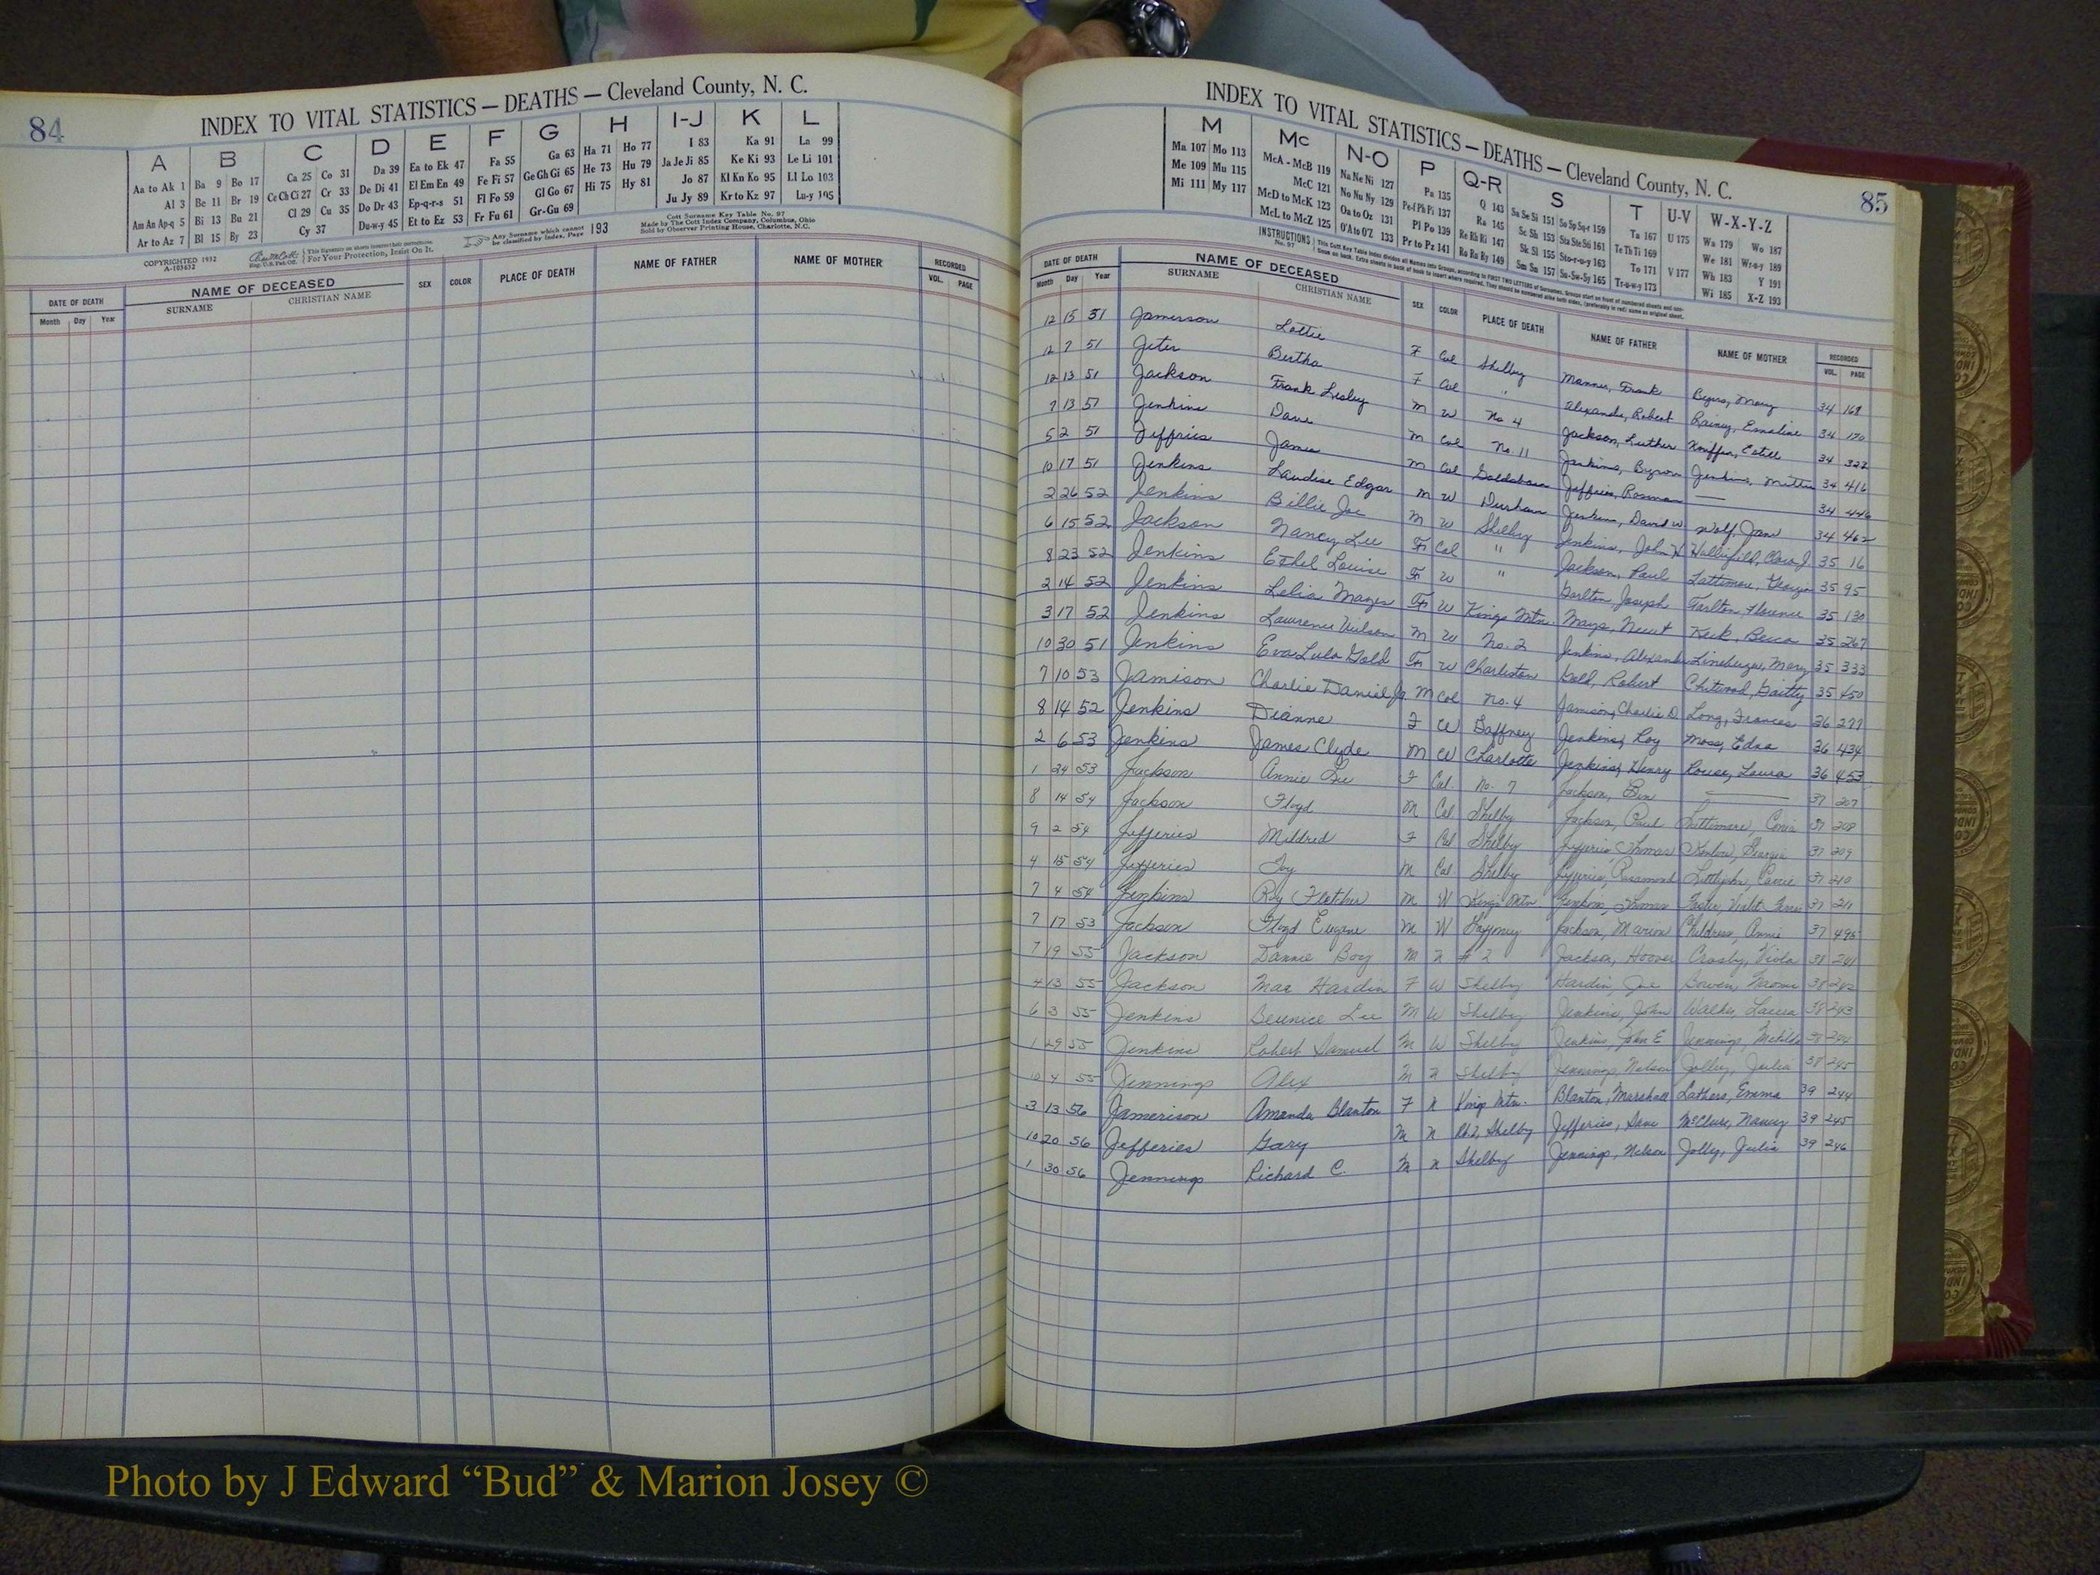 84
INDEX TO VITAL STATISTICS — DEATHS — Cleveland County, N. C.
A B C D E F G H I-J K L
Aa to Ak 1 Ba 9 Bo 17 Ca 25 Co 31 Da 39 Ea to Ek 47 Fa 55 Ga 63 Ha 71 Ho 77 I 83 Ka 91 La 99
Al 3 Be 11 Br 19 Ce Ch Ci 27 Cr 33 De Di 41 El Em En 49 Fe Fi 57 Ge Gh Gi 65 He 73 Hu 79 Ja Je Ji 85 Ke Ki 93 Le Li 101
Am An Ap-q 5 Bi 13 Bu 21 Cl 29 Cu 35 Do Dr 43 Ep-q-r-s 51 Fl Fo 59 Gl Go 67 Hi 75 Hy 81 Jo 87 Kl Kn Ko 95 Ll Lo 103
Ar to Az 7 Bl 15 By 23 Cy 37 Du-w-y 45 Et to Ez 53 Fr Fu 61 Gr-Gu 69 Ju Jy 89 Kr to Kz 97 Lu-y 105
COPYRIGHTED 1932
A-103632
For Your Protection, Insist On It.
Any Surname which cannot be classified by Index, Page 193
Cott Surname Key Table No. 97
Made by The Cott Index Company, Columbus, Ohio
Sold by Observer Printing House, Charlotte, N.C.
DATE OF DEATH NAME OF DECEASED SEX COLOR PLACE OF DEATH NAME OF FATHER NAME OF MOTHER RECORDED
Month Day Year SURNAME CHRISTIAN NAME VOL. PAGE
INDEX TO VITAL STATISTICS — DEATHS — Cleveland County, N. C.
85
M Mc N-O P Q-R S T U-V W-X-Y-Z
Ma 107 Mo 113 McA - McB 119 Na Ne Ni 127 Pa 135 Q 143 Sa Se Si 151 So Sp Sq-r 159 Ta 167 U 175 Wa 179 Wo 187
Me 109 Mu 115 McC 121 No Nu Ny 129 Pe-f Ph Pi 137 Ra 145 Sc Sh 153 Sta Ste Sti 161 Te Th Ti 169 We 181 Wr-u-y 189
Mi 111 My 117 McD to McK 123 Oa to Oz 131 Pl Po 139 Re Rh Ri 147 Sk Sl 155 Sto-r-u-y 163 To 171 V 177 Wh 183 Y 191
McL to McZ 125 O'A to O'Z 133 Pr to Pz 141 Ro Ru Ry 149 Sm Sn 157 Su-Sw-Sy 165 Tr-u-w-y 173 Wi 185 X-Z 193
INSTRUCTIONS No. 97
DATE OF DEATH NAME OF DECEASED SEX COLOR PLACE OF DEATH NAME OF FATHER NAME OF MOTHER RECORDED
Month Day Year SURNAME CHRISTIAN NAME VOL. PAGE
12 15 51 Jamerson Lottie F Col Shelby Manner, Frank Mary 34 169
12 7 51 Jeter Bertha F Col " Alexander, Robert Rainey, Emaline 34 170
12 13 51 Jackson Frank Lesley M W No 4 Jackson, Luther Estell 34 322
7 13 51 Jenkins Dave M Col No. 11 Jenkins, Byron Jenkins, Mittie 34 416
5 2 51 Jeffries James M Col Goldsboro Jeffries, Rosman — 34 446
10 17 51 Jenkins Landise Edgar M W Durham Jenkins, David W Wolf, Jane 34 462
2 26 52 Jenkins Billie Joe M W Shelby Jenkins, John H Hollifield, Clara J. 35 16
6 15 52 Jackson Nancy Lee F Col " Jackson, Paul Lattimore, Georgia 35 95
8 23 52 Jenkins Ethel Louise F W " Joseph Tarlton, Florence 35 130
2 14 52 Jenkins Lelia Mayes F W Kings Mtn. Mays, Newt Keck, Becca 35 267
3 17 52 Jenkins Lawrence Wilson M W No. 2 Jenkins, Alexander Lineberger, Mary 35 333
10 30 51 Jenkins Eva Lula Gold F W Charleston Gold, Robert Chitwood, Gaitty 35 450
7 10 53 Jamison Charlie Daniel Jr M Col No. 4 Jamison, Charlie D. Long, Frances 36 277
8 14 52 Jenkins Dianne F W Gaffney Jenkins, Roy Moss, Edna 36 434
2 6 53 Jenkins James Clyde M W Charlotte Jenkins, Henry Rouse, Laura 36 453
1 24 53 Jackson Annie Lee F Col No. 7 Jackson, Ben — 37 207
8 14 54 Jackson Floyd M Col Shelby Jackson, Paul Lattimore, 37 208
9 2 54 Jefferies Mildred F Col Shelby Jefferies Thomas Georgia 37 209
4 15 54 Jefferies M Col Shelby Jefferies, Rosamond Littlejohn, Carrie 37 210
7 4 54 Jenkins Roy Fletcher M W Kings Mtn. Jenkins, Thomas 37 211
7 17 53 Jackson Floyd Eugene M W Gaffney Jackson, Marion Childress, Annie 37 495
7 19 55 Jackson Dannie Boy M N # 2 Jackson, Hoover Crosby, Viola 38 241
4 13 55 Jackson Mae Hardin F W Shelby Hardin, Joe Bowen, Naomi 38 242
6 3 55 Jenkins Beunice Lee M W Shelby Jenkins, John Walker, Laura 38 243
1 29 55 Jenkins Robert Samuel M W Shelby Jenkins, John E Jennings, Matilda 38 244
10 4 55 Jennings Alex M N Shelby Jennings, Nelson Jolley, Julia 38 245
3 13 56 Jamerison Amanda Blanton F N Kings Mtn. Blanton, Marshall Lathers, Emma 39 244
10 20 56 Jefferies Gary M N Rt 2, Shelby Jefferies, Dave McClure, Nancy 39 245
1 30 56 Jennings Richard C. M N Shelby Jennings, Nelson Jolly, Julia 39 246
Photo by J Edward “Bud” & Marion Josey ©